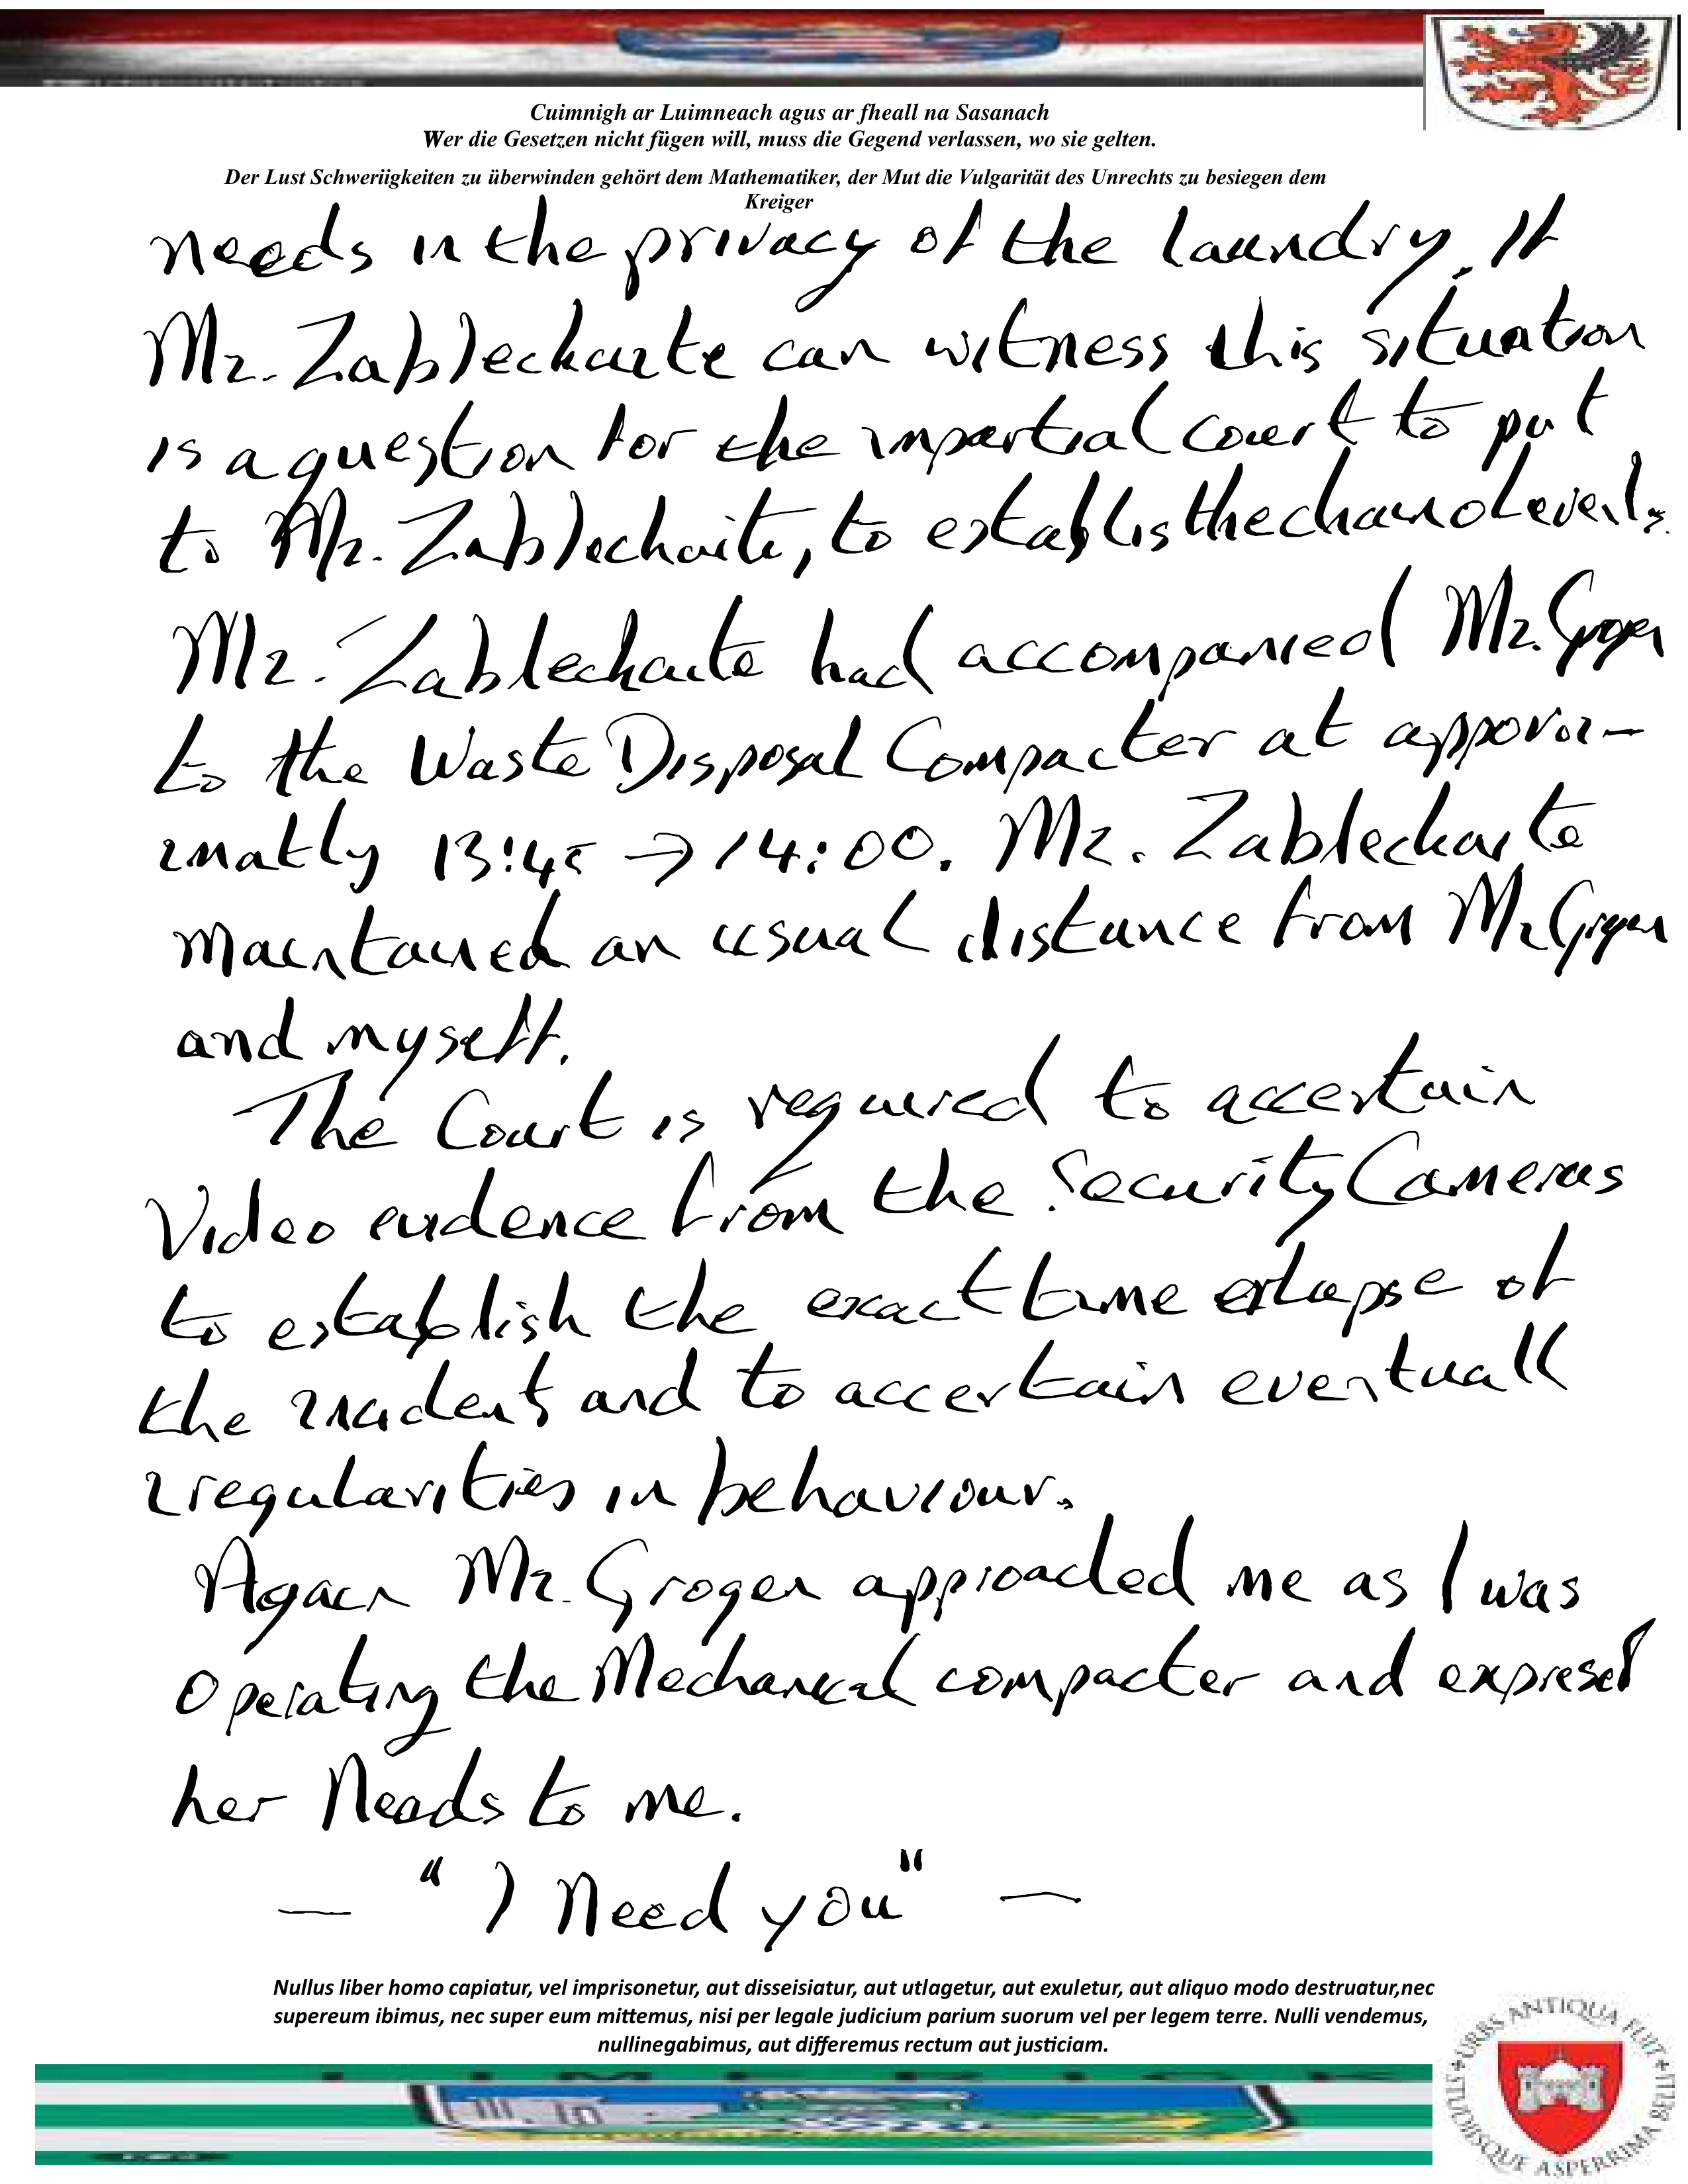 Cuimnigh ar Luimneach agus ar fheall na Sasanach
Wer die Gesetzen nicht fügen will, muss die Gegend verlassen, wo sie gelten.
Der Lust Schweriigkeiten zu überwinden gehört dem Mathematiker, der Mut die Vulgarität des Unrechts zu besiegen dem
Kreiger
needs in the privacy of the laundry. If
Mr. Zableckaite can witness this situation
is a question for the impartial court to put
to Mr. Zablechaite, to establis the chain of events.
Mr. Zablechaite had accompanied Mr. Grogen
to the Waste Disposal Compacter at
imatly 13:45 → 14:00. Mr. Zableckaite
maintained an usual distance from Mr Grogen
and myself.
The Court is required to accertain
Video evidence from the Security Cameras
to establish the exact time elapse of
the incident and to accertain eventuall
irregularities in behaviour.
Again Mr. Grogen approached me as I was
operating the Mechanical compacter and expresed
her Needs to me.
— "I Need you" —
Nullus liber homo capiatur, vel imprisonetur, aut disseisiatur, aut utlagetur, aut exuletur, aut aliquo modo destruatur,nec
supereum ibimus, nec super eum mittemus, nisi per legale judicium parium suorum vel per legem terre. Nulli vendemus,
nullinegabimus, aut differemus rectum aut justiciam.
URBS ANTIQUA FUIT STUDIISQUE ASPERRIMA BELLI